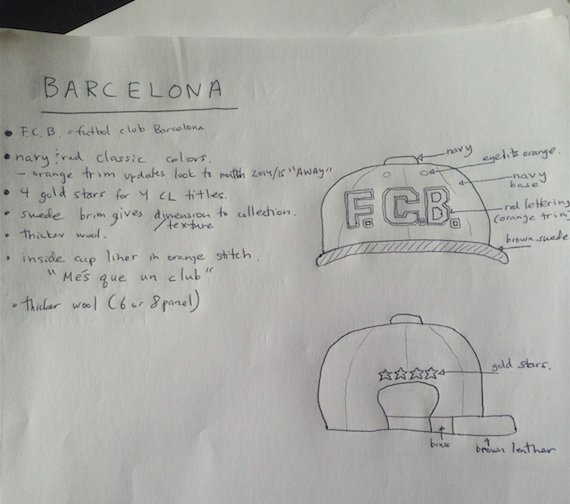 BARCELONA
F.C.B. = futbol club Barcelona
navy & red classic colors.
- orange trim updates look to match 2014/15 "AWAY"
4 gold stars for 4 CL titles.
suede brim gives dimension to collection.
/texture
thicker wool.
inside cap liner in orange stitch.
"Més que un club"
thicker wool (6 or 8 panel)
navy
eyelits orange.
navy
base
red lettering
(orange trim)
brown suede
F.C.B.
gold stars.
brass
brown leather